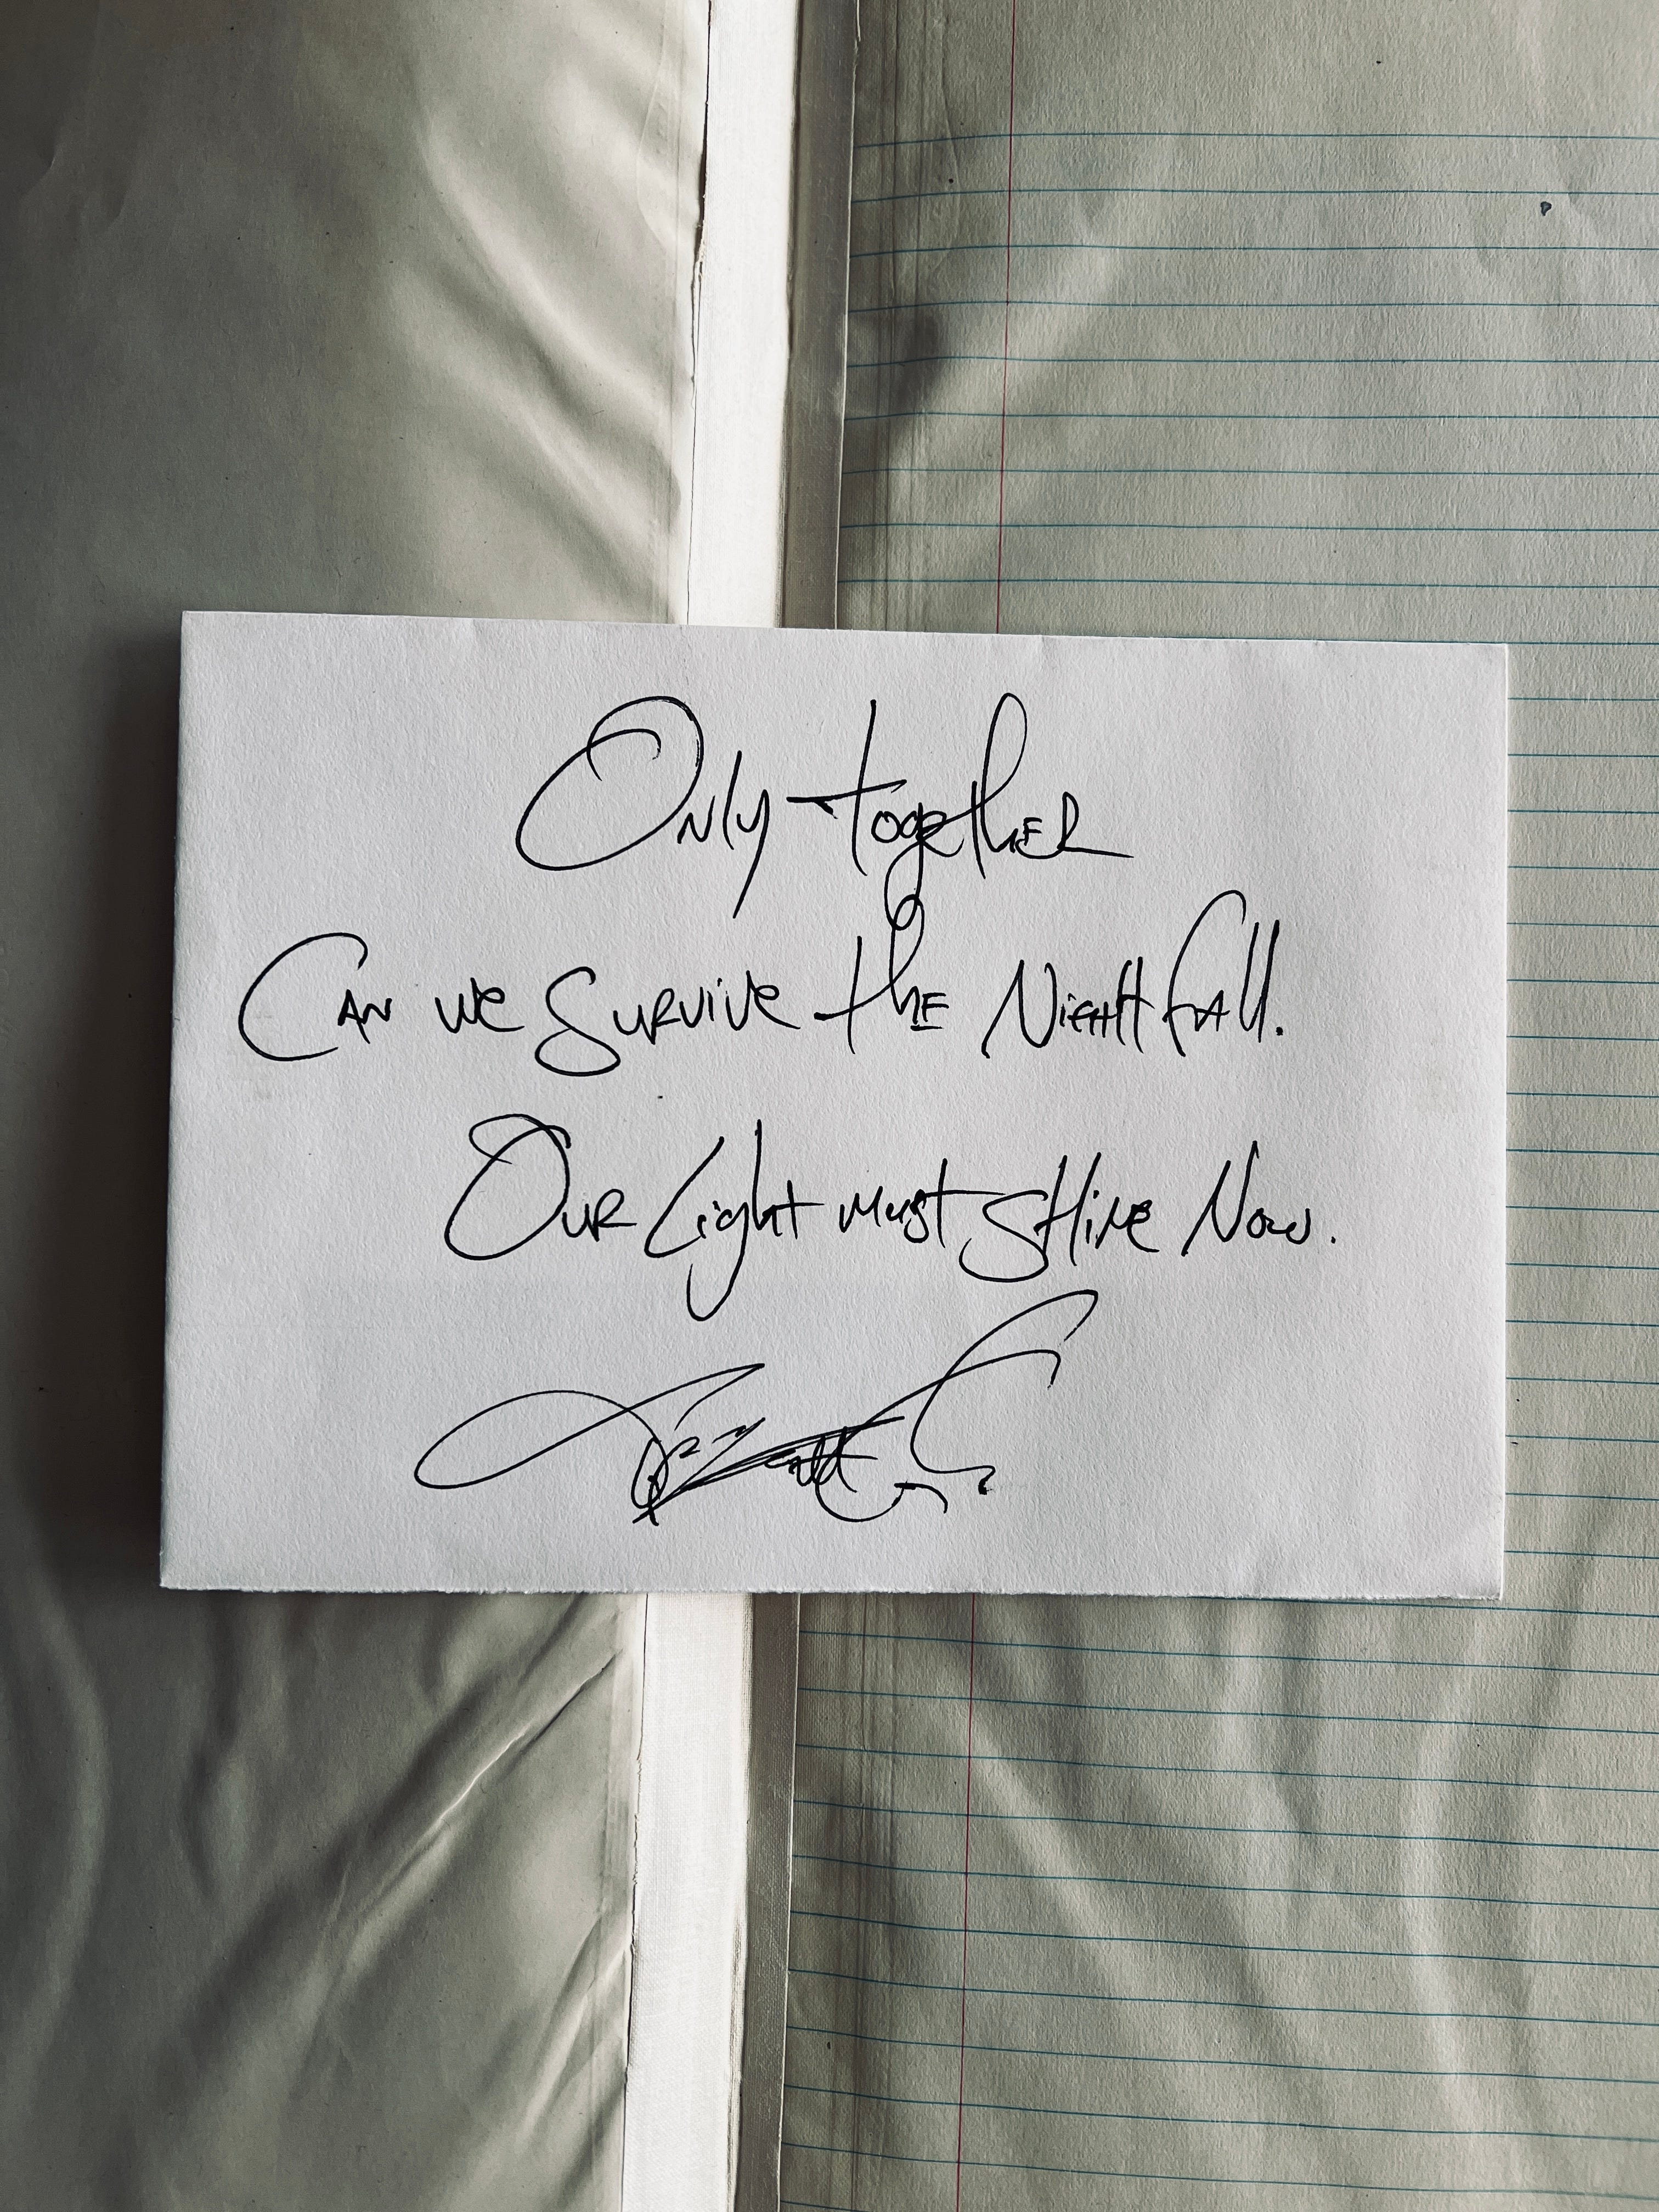 Only together
Can we survive the Nightfall.
Our light must shine now.